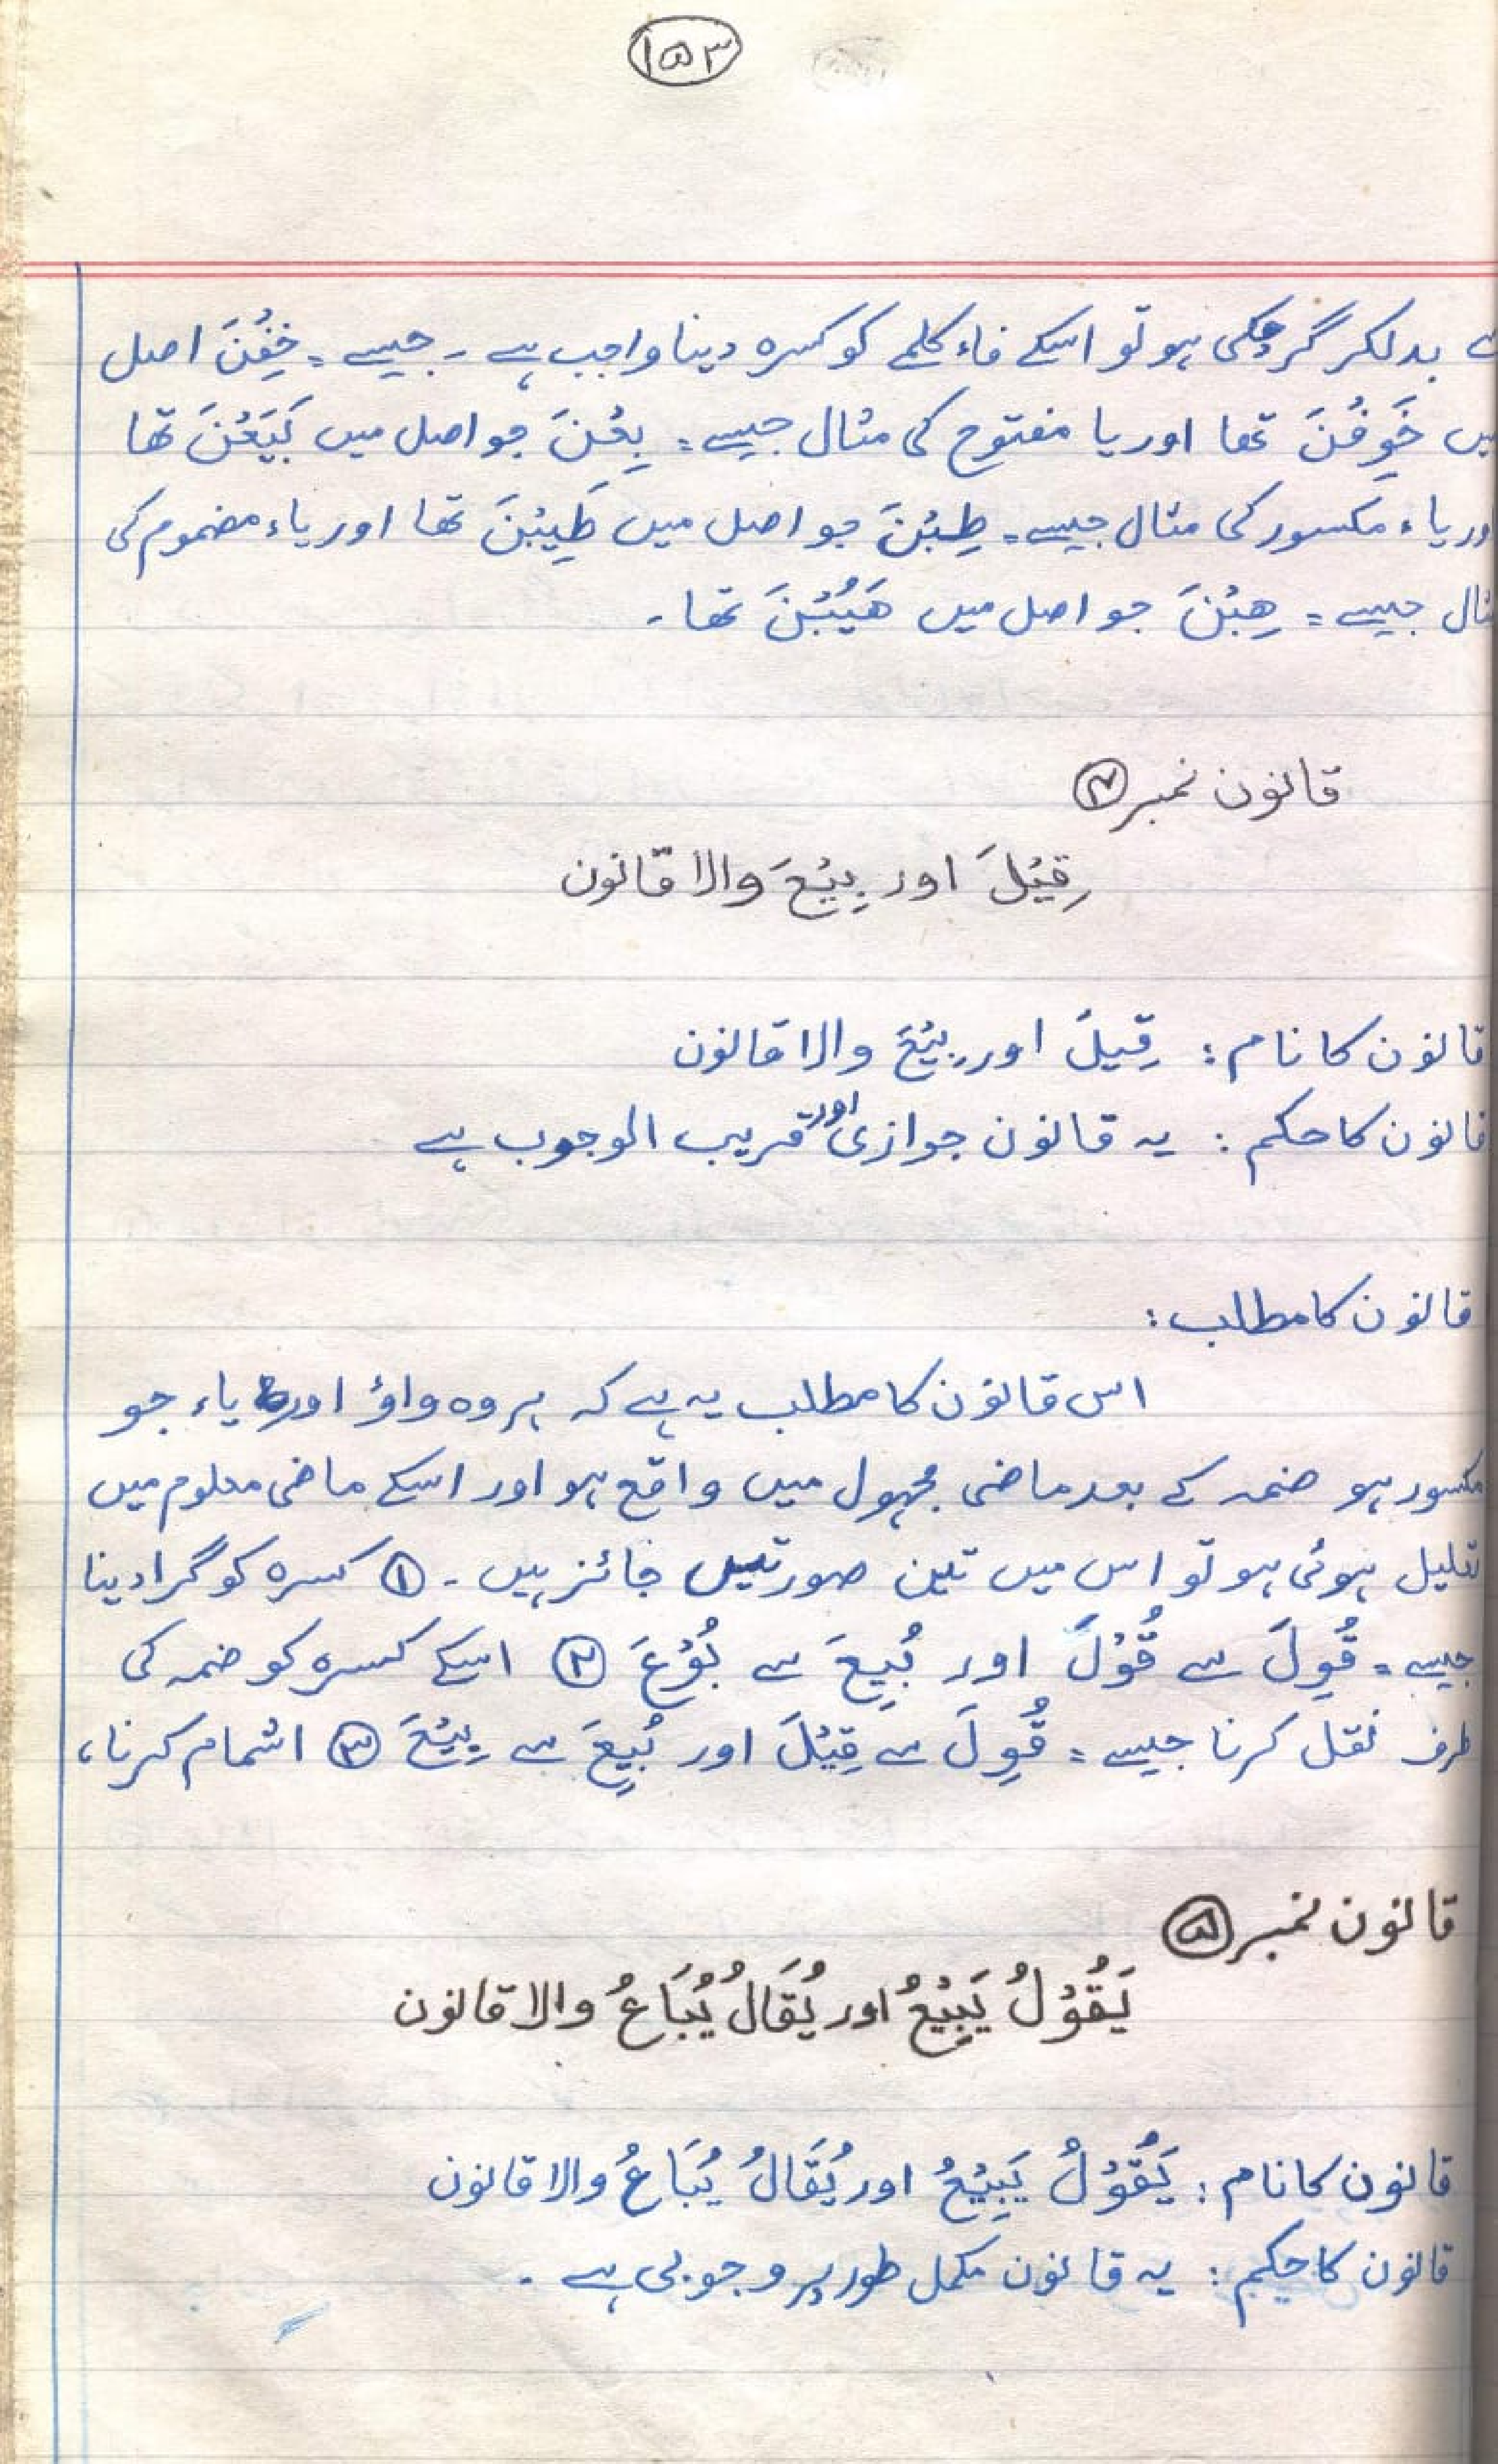 ۱۵۳
سے بدلکر گر چکی ہو تو اسکے فاء کلمے کو کسرہ دینا واجب ہے ۔ جیسے ۔ خِفْنَ اصل
میں خَوِفْنَ تھا اور یا مفتوح کی مثال جیسے = بِعْنَ جو اصل میں بَیَعْنَ تھا
اور یاء مکسور کی مثال جیسے ۔ طِبْنَ جو اصل میں طَیِبْنَ تھا اور یاء مضموم کی
مثال جیسے = ھِبْنَ جو اصل میں ھَیُبْنَ تھا ۔
قانون نمبر ۴
قِیْلَ اور بِیْعَ والا قانون
قانون کا نام : قِیلَ اور بِیْعَ والا قانون
قانون کا حکم : یہ قانون جوازی اور قریب الوجوب ہے
قانون کا مطلب :
اس قانون کا مطلب یہ ہے کہ ہر وہ واؤ اور یاء جو
مکسور ہو ضمہ کے بعد ماضی مجہول میں واقع ہو اور اسکے ماضی معلوم میں
تعلیل ہوئی ہو تو اس میں تین صورتیں جائز ہیں ۔ ① کسرہ کو گرا دینا
جیسے ۔ قُوِلَ سے قُوْلَ اور بُیِعَ سے بُوْعَ ② اسکے کسرہ کو ضمہ کی
طرف نقل کرنا جیسے = قُوِلَ سے قِیْلَ اور بُیِعَ سے بِیْعَ ③ اشمام کرنا ،
قانون نمبر ۵
یَقُوْلُ یَبِیْعُ اور یُقَالُ یُبَاعُ والا قانون
قانون کا نام : یَقُوْلُ یَبِیْعُ اور یُقَالُ یُبَاعُ والا قانون
قانون کا حکم : یہ قانون مکمل طور پر وجوبی ہے ۔